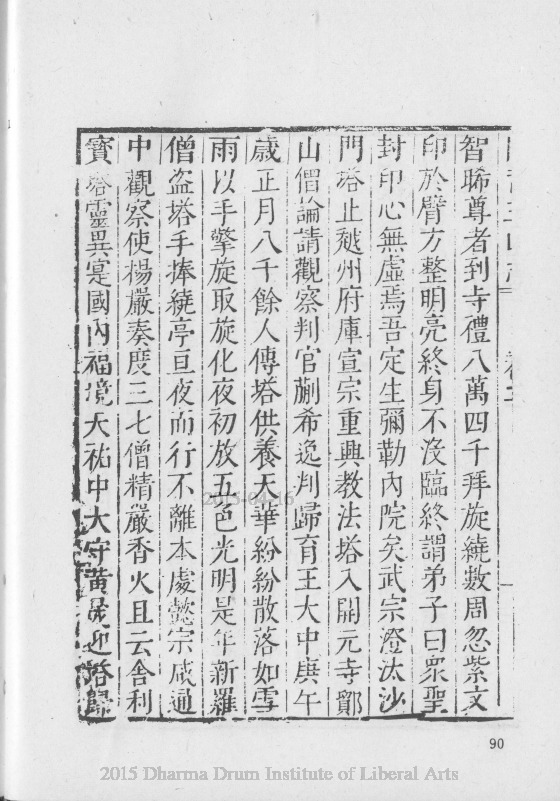 智晞尊者到寺禮八萬四千拜旋繞數周忽紫文
印於臂方整明亮終身不沒臨終謂弟子曰眾聖
封印心無虛焉吾定生彌勒內院矣武宗澄汰沙
門塔止越州府庫宣宗重興教法塔入開元寺鄮
山僧論請觀察判官蒯希逸判歸育王大中庚午
歲正月八千餘人傳塔供養天華紛紛散落如雪
雨以手擎旋取旋化夜初放五色光明是年新羅
僧盜塔手捧繞亭亘夜而行不離本處懿宗咸通
中觀察使楊嚴奏度三七僧精嚴香火且云舍利
寶塔靈異寔國內福境天祐中大守黃晟迎塔歸
90
2015-04-16
2015 Dharma Drum Institute of Liberal Arts